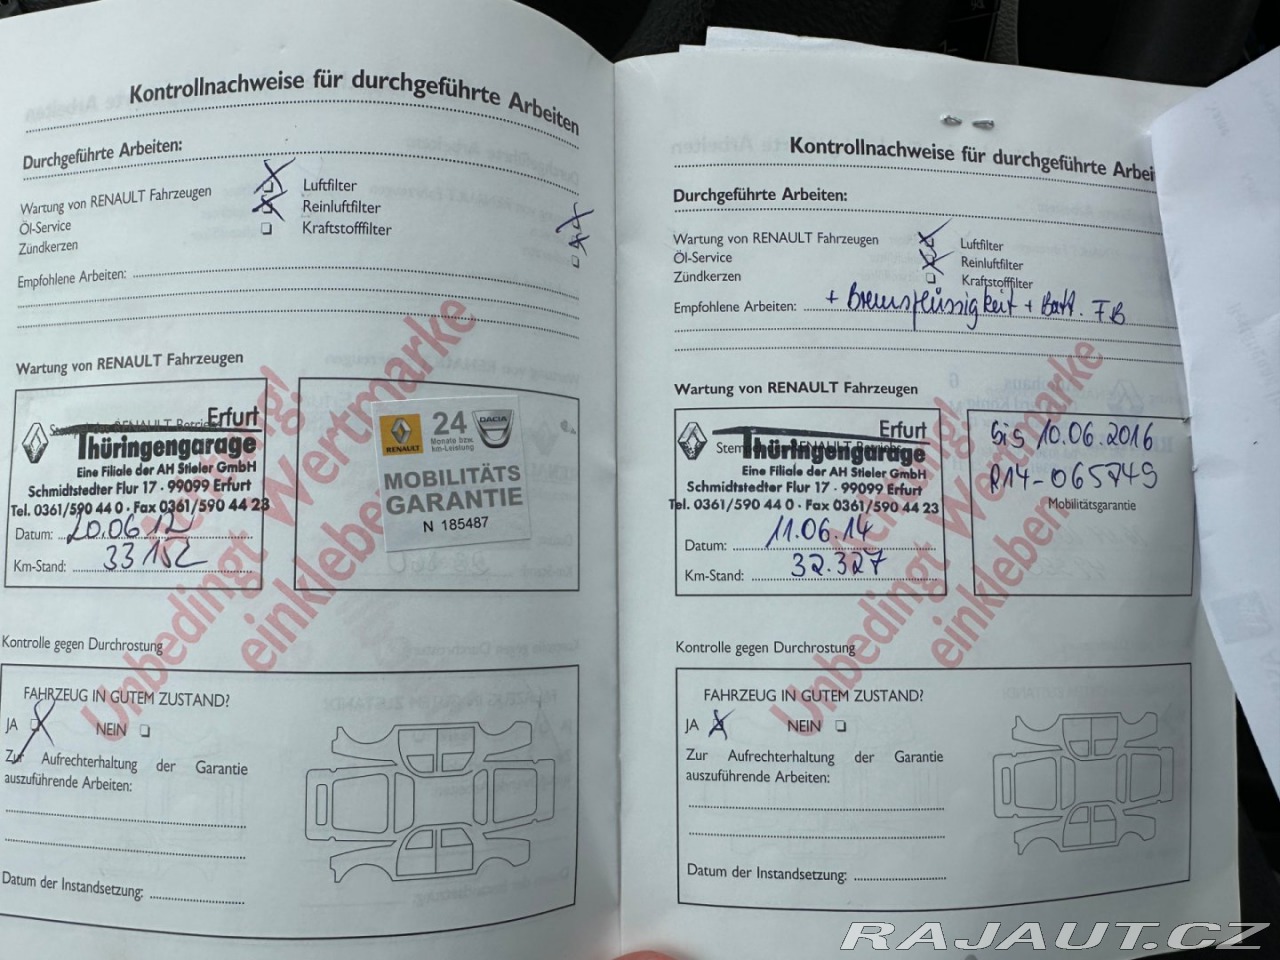 Kontrollnachweise für durchgeführte Arbeiten
Durchgeführte Arbeiten:
Wartung von RENAULT Fahrzeugen
Öl-Service
Zündkerzen
Luftfilter
Reinluftfilter
Kraftstofffilter
Empfohlene Arbeiten:
Wartung von RENAULT Fahrzeugen
Erfurt
Thüringengarage
Eine Filiale der AH Stieler GmbH
Schmidtstedter Flur 17 · 99099 Erfurt
Tel. 0361/590 44 0 · Fax 0361/590 44 23
Datum: 20.06.12
Km-Stand: 33152
RENAULT
24
Monate bzw.
km-Leistung
DACIA
MOBILITÄTS
GARANTIE
N 185487
Achtung!
Unbedingt Wertmarke
einkleben
Kontrolle gegen Durchrostung
FAHRZEUG IN GUTEM ZUSTAND?
JA NEIN
Zur Aufrechterhaltung der Garantie
auszuführende Arbeiten:
Datum der Instandsetzung:
Kontrollnachweise für durchgeführte Arbei
Durchgeführte Arbeiten:
Wartung von RENAULT Fahrzeugen
Öl-Service
Zündkerzen
Luftfilter
Reinluftfilter
Kraftstofffilter
Empfohlene Arbeiten: + Bremsflüssigkeit + Batt. FB
Wartung von RENAULT Fahrzeugen
Erfurt
Thüringengarage
Eine Filiale der AH Stieler GmbH
Schmidtstedter Flur 17 · 99099 Erfurt
Tel. 0361/590 44 0 · Fax 0361/590 44 23
Datum: 11.06.14
Km-Stand: 32.327
bis 10.06.2016
R14-065749
Mobilitätsgarantie
Achtung!
Unbedingt Wertmarke
einkleben
Kontrolle gegen Durchrostung
FAHRZEUG IN GUTEM ZUSTAND?
JA NEIN
Zur Aufrechterhaltung der Garantie
auszuführende Arbeiten:
Datum der Instandsetzung:
RAJAUT.CZ